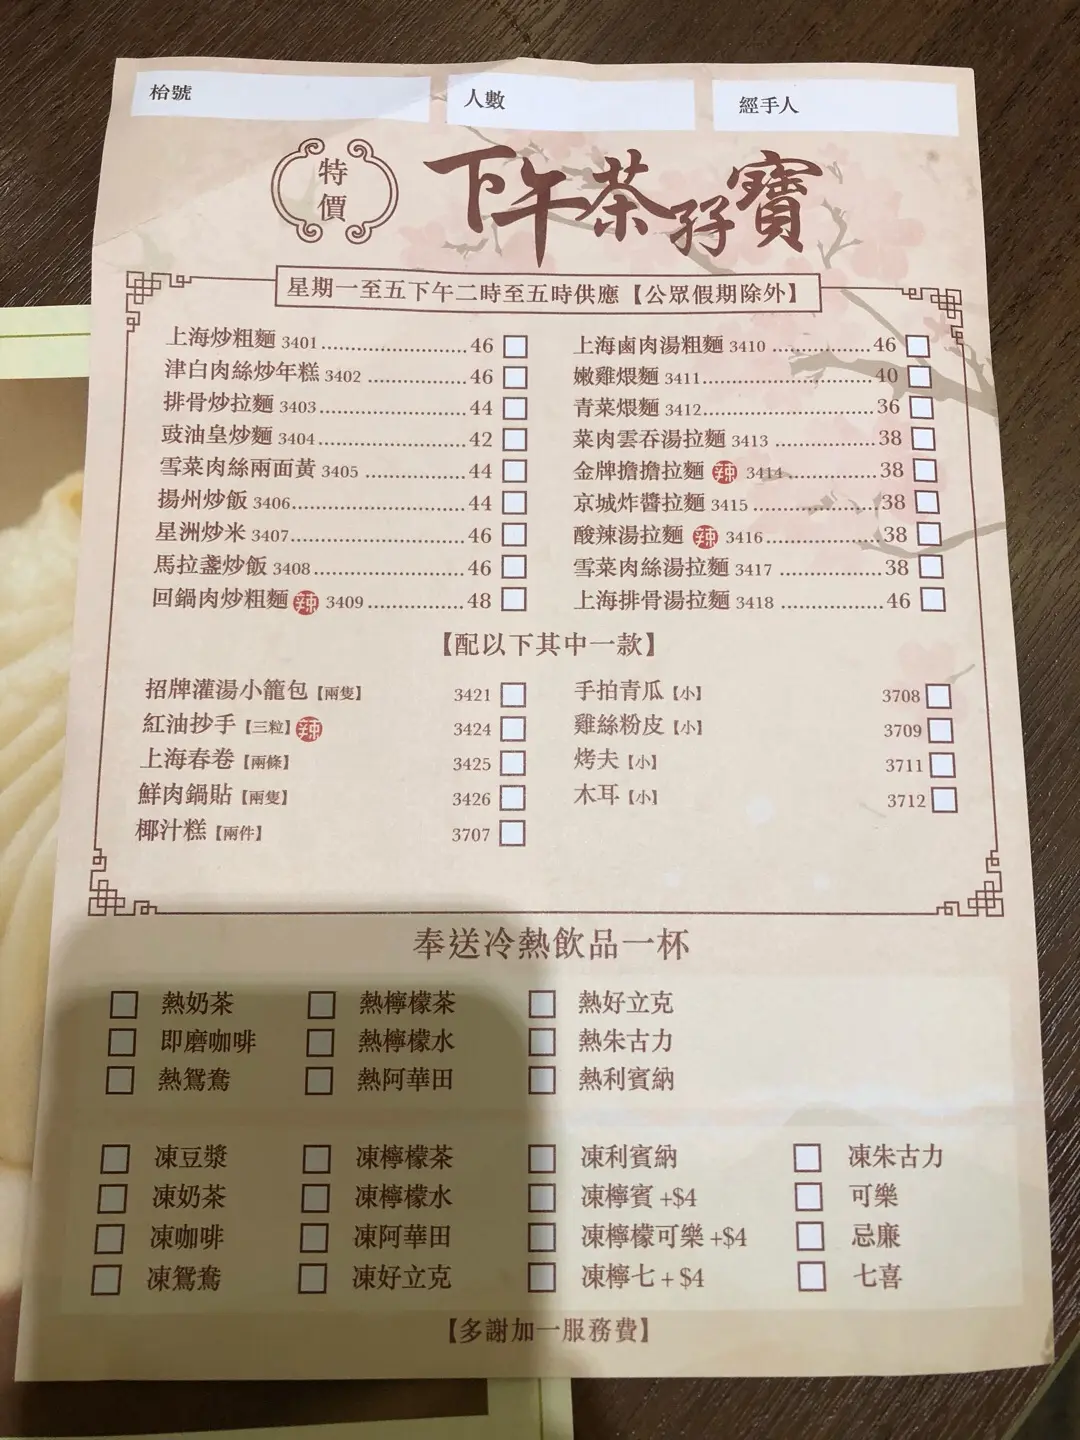 枱號 人數 經手人
特價 下午茶孖寶
星期一至五下午二時至五時供應【公眾假期除外】
上海炒粗麵 3401 46
津白肉絲炒年糕 3402 46
排骨炒拉麵 3403 44
豉油皇炒麵 3404 42
雪菜肉絲兩面黃 3405 44
揚州炒飯 3406 44
星洲炒米 3407 46
馬拉盞炒飯 3408 46
回鍋肉炒粗麵 辣 3409 48
上海鹵肉湯粗麵 3410 46
嫩雞煨麵 3411 40
青菜煨麵 3412 36
菜肉雲吞湯拉麵 3413 38
金牌擔擔拉麵 辣 3414 38
京城炸醬拉麵 3415 38
酸辣湯拉麵 辣 3416 38
雪菜肉絲湯拉麵 3417 38
上海排骨湯拉麵 3418 46
【配以下其中一款】
招牌灌湯小籠包【兩隻】 3421
紅油抄手【三粒】辣 3424
上海春卷【兩條】 3425
鮮肉鍋貼【兩隻】 3426
椰汁糕【兩件】 3707
手拍青瓜【小】 3708
雞絲粉皮【小】 3709
烤夫【小】 3711
木耳【小】 3712
奉送冷熱飲品一杯
熱奶茶 熱檸檬茶 熱好立克
即磨咖啡 熱檸檬水 熱朱古力
熱鴛鴦 熱阿華田 熱利賓納
凍豆漿 凍檸檬茶 凍利賓納 凍朱古力
凍奶茶 凍檸檬水 凍檸賓 +$4 可樂
凍咖啡 凍阿華田 凍檸檬可樂 +$4 忌廉
凍鴛鴦 凍好立克 凍檸七 + $4 七喜
【多謝加一服務費】